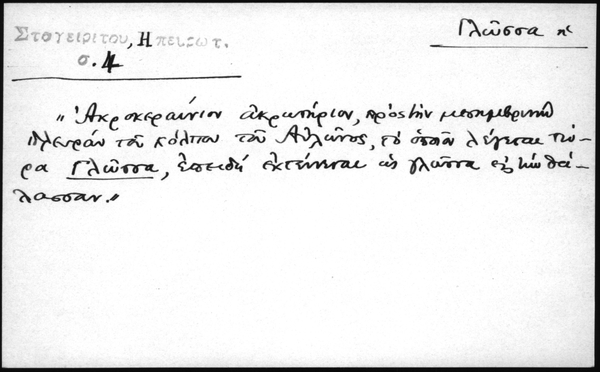 Σταγειρίτου, Ηπειρωτ.
σ. 4
Γλῶσσα ἡ
"Ἀκροκεραύνιον ἀκρωτήριον, πρὸς τὴν μεσημβρινὴν
πλευρὰν τοῦ κόλπου τοῦ Αὐλῶνος, τὸ ὁποῖον λέγεται τώ-
ρα Γλῶσσα, ἐπειδὴ ἐκτείνεται ὡς γλῶσσα εἰς τὴν θά-
λασσαν."